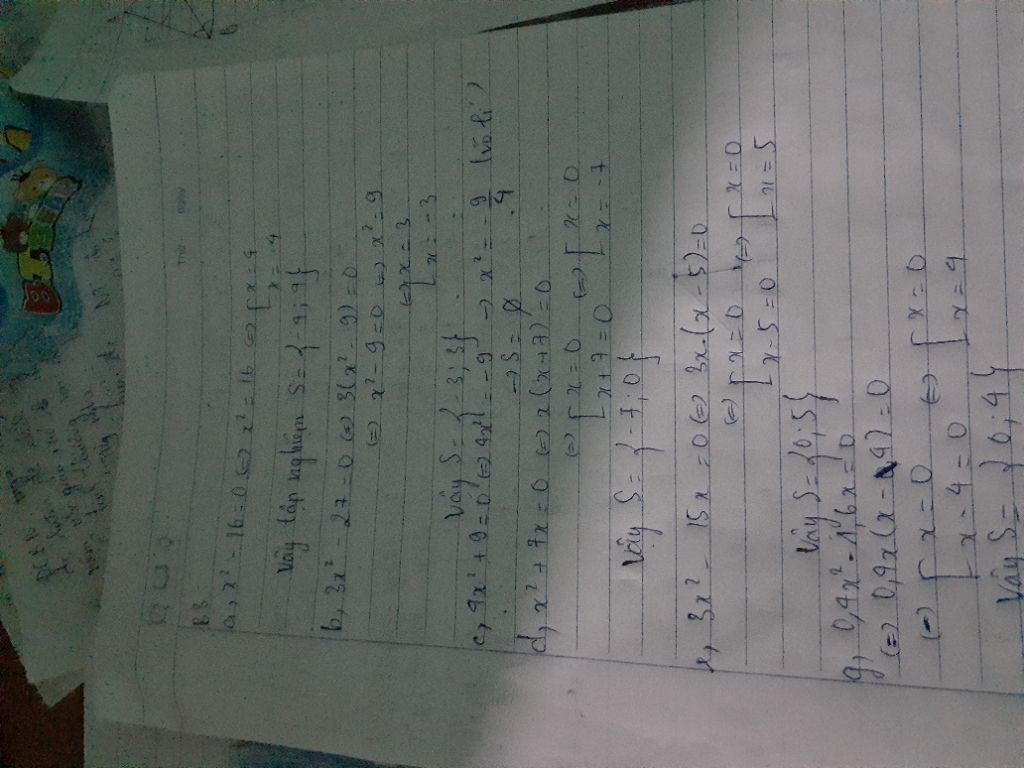 B3
a, x² - 16 = 0 (=) x² = 16 (=) [ x = 4
x = -4
Vậy tập nghiệm S = { -4; 4 }
b, 3x² - 27 = 0 (=) 3(x² - 9) = 0
(=) x² - 9 = 0 (=) x² = 9
(=) x = 3
[ x = -3
Vậy S = { -3; 3 }
c, 4x² + 9 = 0 (=) 4x² = -9 → x² = -9/4 (vô lí)
→ S = ∅
d, x² + 7x = 0 (=) x(x+7) = 0
(=) [ x = 0 (=) [ x = 0
[ x + 7 = 0 [ x = -7
Vậy S = { -7; 0 }
e, 3x² - 15x = 0 (=) 3x.(x - 5) = 0
(=) [ x = 0 (=) [ x = 0
[ x - 5 = 0 [ x = 5
Vậy S = { 0; 5 }
g, 0,4x² - 1,6x = 0
(=) 0,4x(x - 4) = 0
(=) [ x = 0 (=) [ x = 0
[ x - 4 = 0 [ x = 4
Vậy S = { 0; 4 }